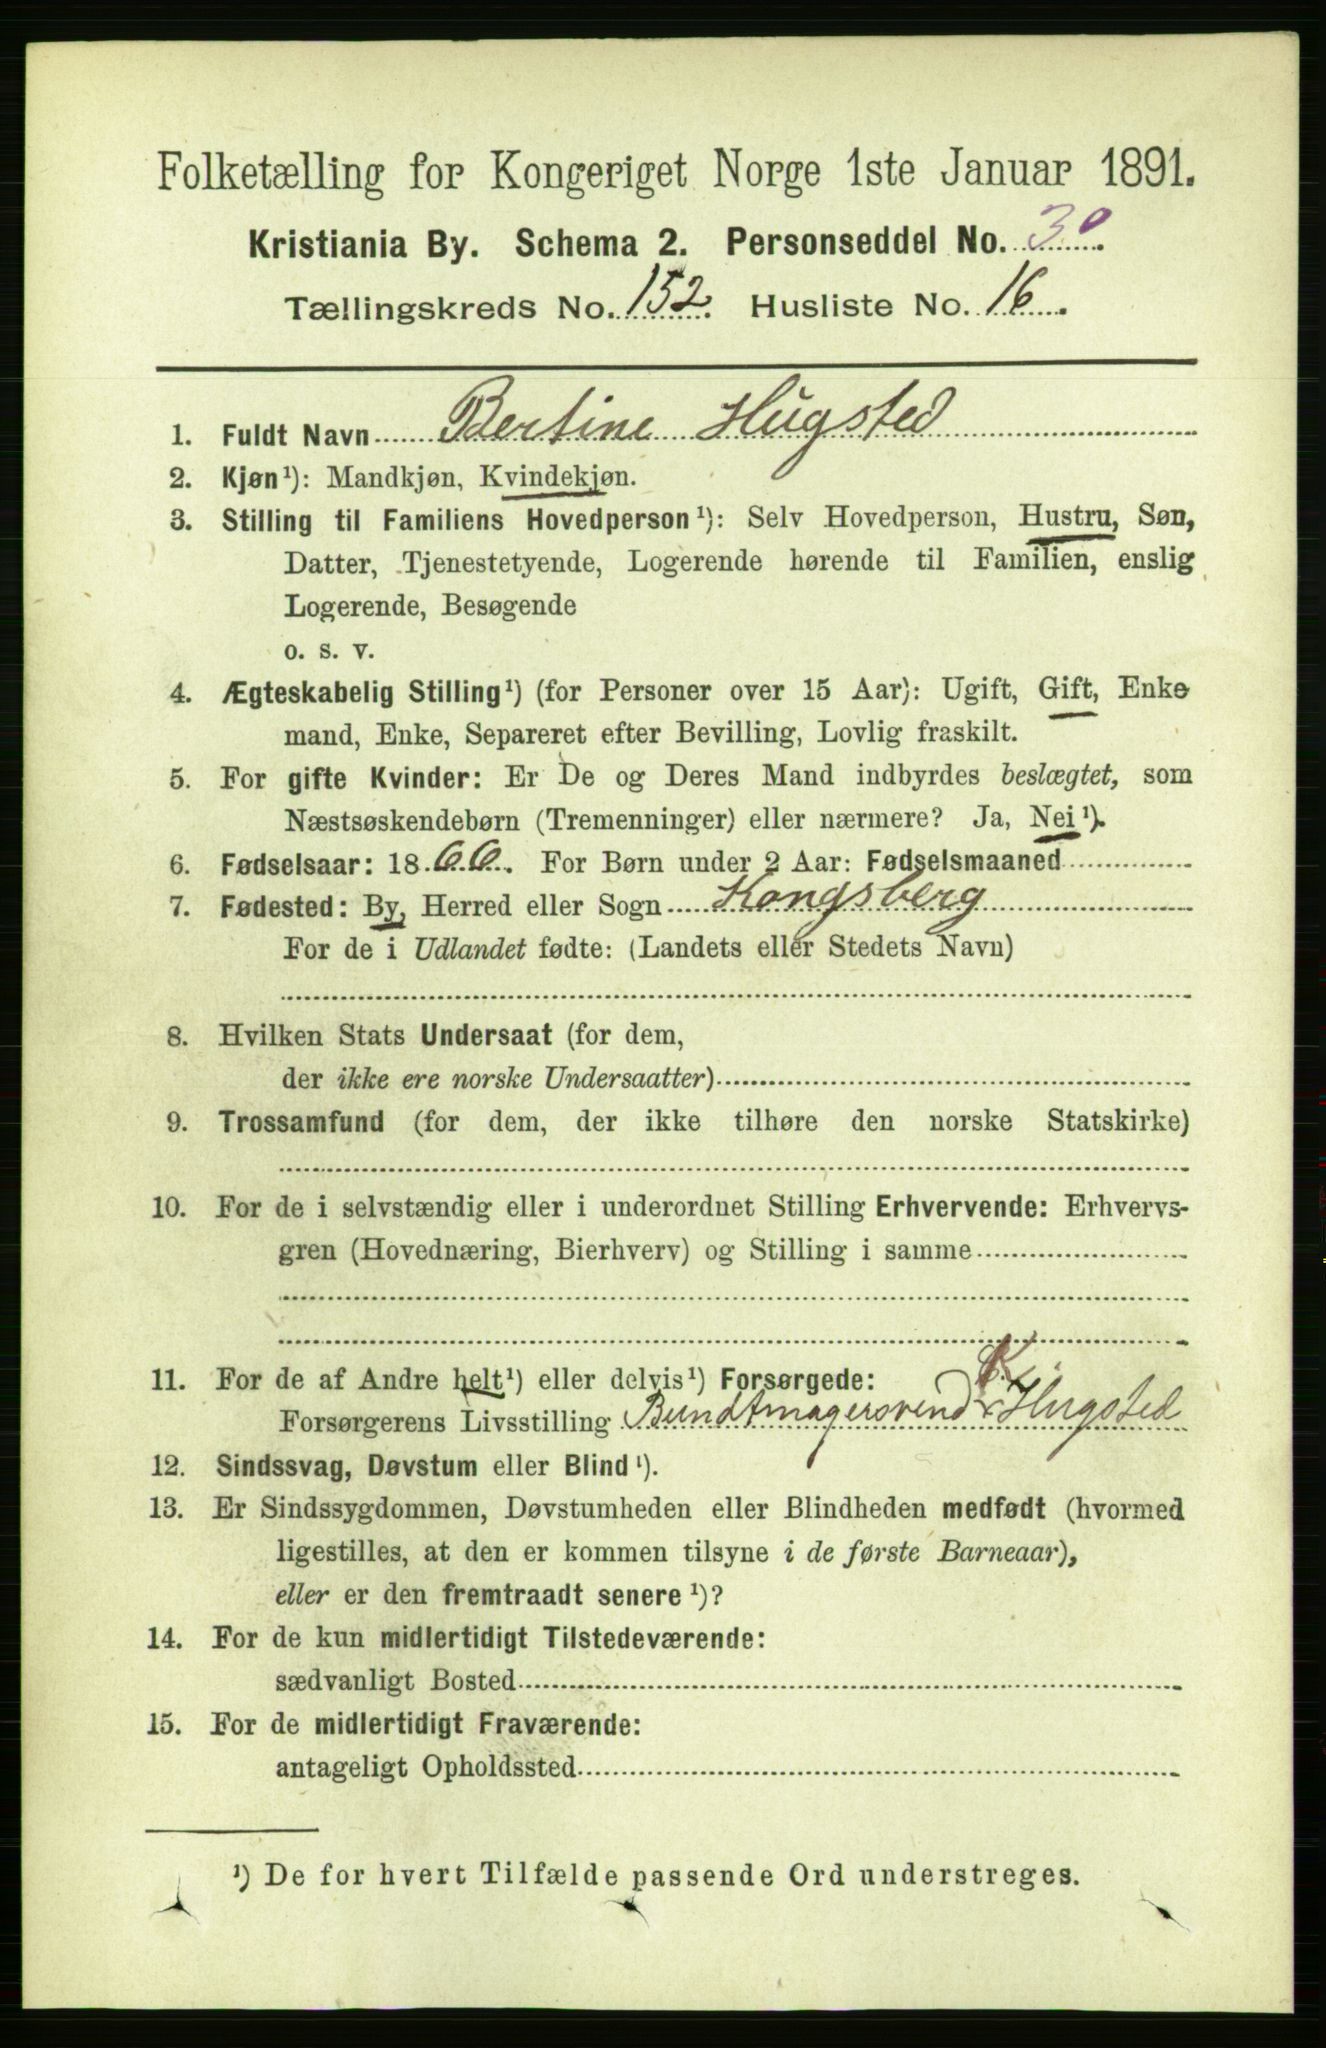 Folketælling for Kongeriget Norge 1ste Januar 1891.
Kristiania By. Schema 2. Personseddel No. 30.
Tællingskreds No. 152. Husliste No. 16.
1. Fuldt Navn Bertine Hugsted
2. Kjøn¹): Mandkjøn, Kvindekjøn.
3. Stilling til Familiens Hovedperson¹): Selv Hovedperson, Hustru, Søn,
Datter, Tjenestetyende, Logerende hørende til Familien, enslig
Logerende, Besøgende
o. s. v.
4. Ægteskabelig Stilling¹) (for Personer over 15 Aar): Ugift, Gift, Enke
mand, Enke, Separeret efter Bevilling, Lovlig fraskilt.
5. For gifte Kvinder: Er De og Deres Mand indbyrdes beslægtet, som
Næstsøskendebørn (Tremenninger) eller nærmere? Ja, Nei¹).
6. Fødselsaar: 1866. For Børn under 2 Aar: Fødselsmaaned
7. Fødested: By, Herred eller Sogn Kongsberg
For de i Udlandet fødte: (Landets eller Stedets Navn)
8. Hvilken Stats Undersaat (for dem,
der ikke ere norske Undersaatter)
9. Trossamfund (for dem, der ikke tilhøre den norske Statskirke)
10. For de i selvstændig eller i underordnet Stilling Erhvervende: Erhvervs-
gren (Hovednæring, Bierhverv) og Stilling i samme
11. For de af Andre helt¹) eller delvis¹) Forsørgede:
Forsørgerens Livsstilling Bundtmagersvend K. Hugsted
12. Sindssvag, Døvstum eller Blind¹).
13. Er Sindssygdommen, Døvstumheden eller Blindheden medfødt (hvormed
ligestilles, at den er kommen tilsyne i de første Barneaar),
eller er den fremtraadt senere¹)?
14. For de kun midlertidigt Tilstedeværende:
sædvanligt Bosted
15. For de midlertidigt Fraværende:
antageligt Opholdssted
¹) De for hvert Tilfælde passende Ord understreges.